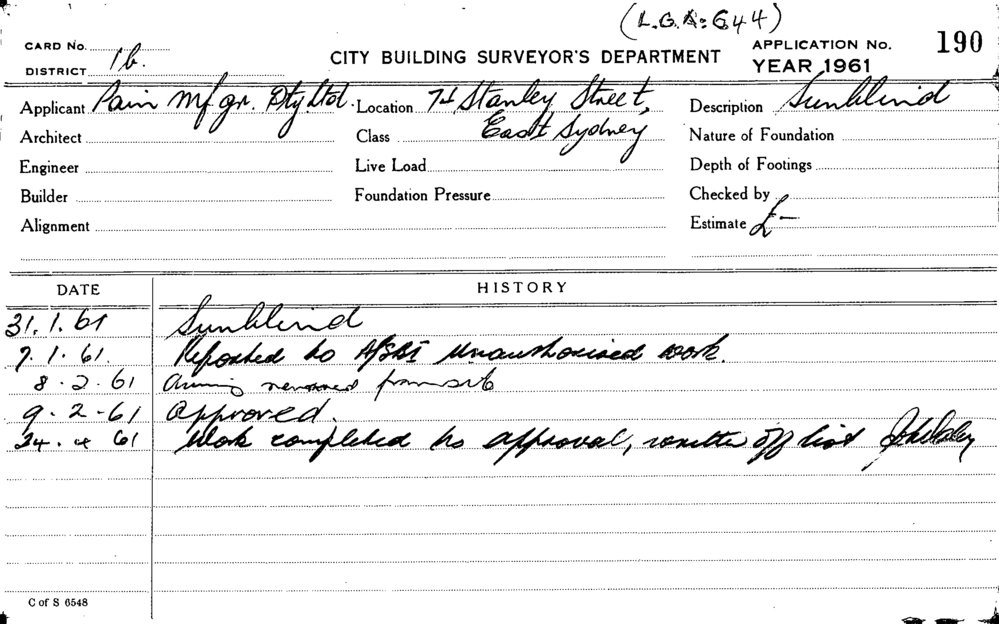 (L.G.A: 644)
CARD No.
DISTRICT 1b.
CITY BUILDING SURVEYOR'S DEPARTMENT
APPLICATION No. 190
YEAR 1961
Applicant Pain Mfgr. Pty Ltd. Location Stanley Street, Description Sunblind
Architect Class East Sydney Nature of Foundation
Engineer Live Load Depth of Footings
Builder Foundation Pressure Checked by
Alignment Estimate £-
DATE HISTORY
31.1.61 Sunblind
7.1.61. Reported to A/SBI Unauthorised work.
8.2.61 Awning removed from site
9-2-61 Approved.
24.4 61 Work completed to approval, written off list
C of S 6548